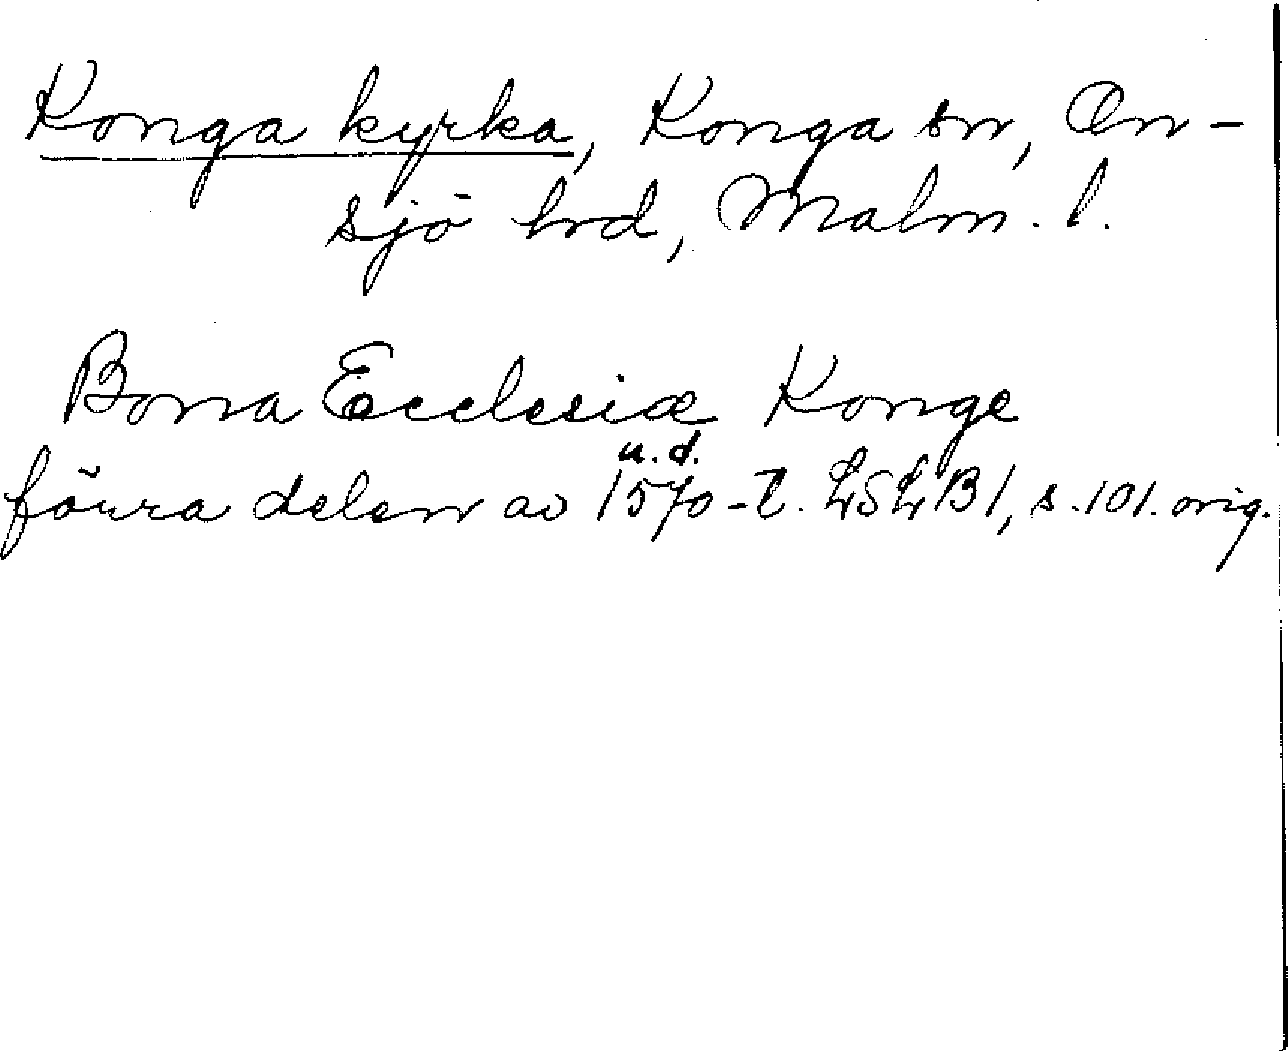 Konga kyrka, Konga sn, On-
sjö hrd, Malm. l.
Bona Ecclesiæ Konge
u. d.
förra delen av 1570-t. LSLB1, s. 101. orig.